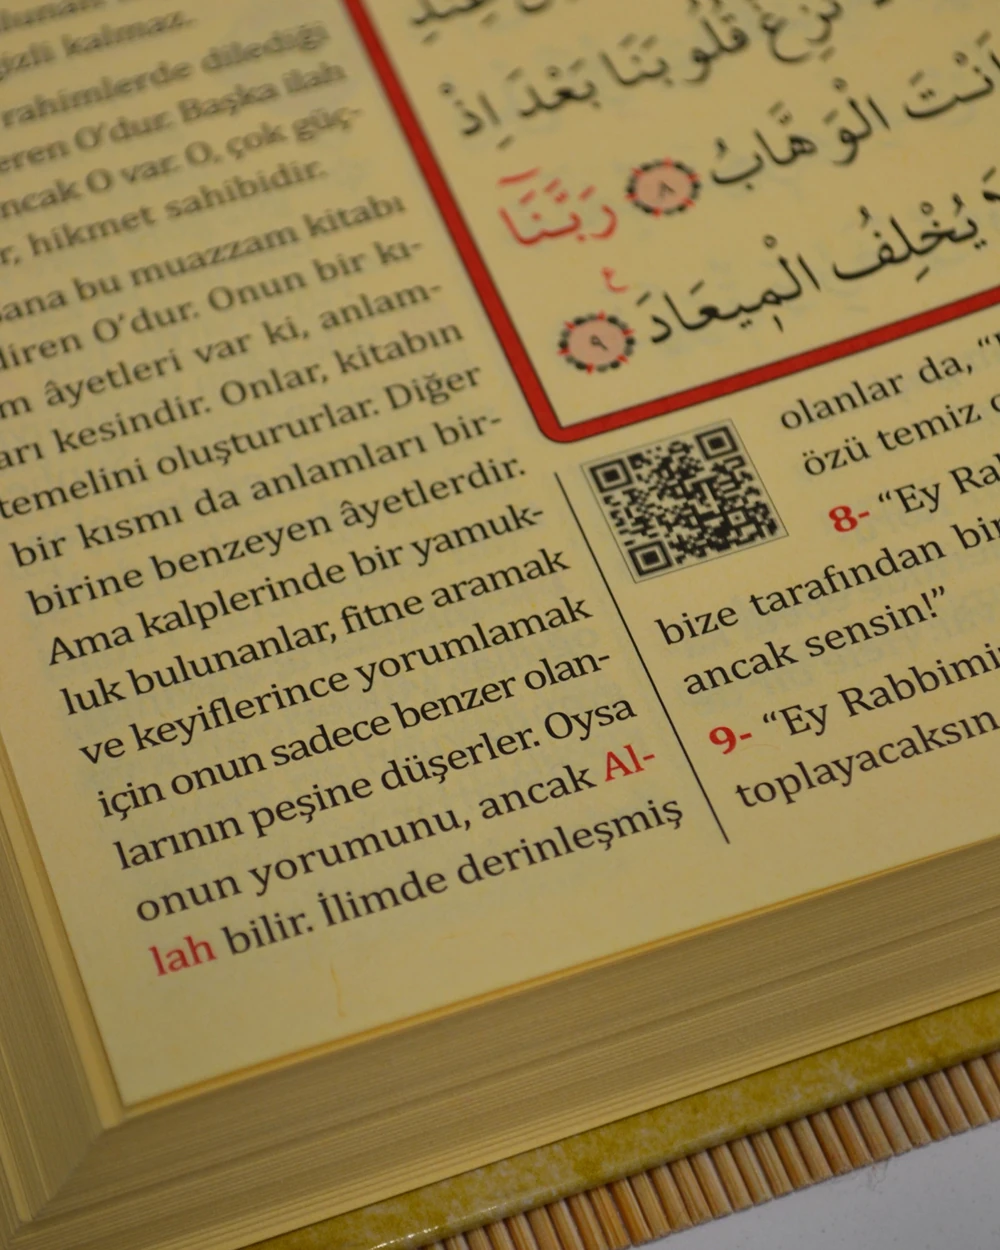 gizli kalmaz.
rahimlerde dilediği
eren O'dur. Başka ilah
ncak O var. O, çok güç-
r, hikmet sahibidir.
Sana bu muazzam kitabı
diren O'dur. Onun bir kı-
m âyetleri var ki, anlam-
arı kesindir. Onlar, kitabın
temelini oluştururlar. Diğer
bir kısmı da anlamları bir-
birine benzeyen âyetlerdir.
Ama kalplerinde bir yamuk-
luk bulunanlar, fitne aramak
ve keyiflerince yorumlamak
için onun sadece benzer olan-
larının peşine düşerler. Oysa
onun yorumunu, ancak Al-
lah bilir. İlimde derinleşmiş
تُزِغْ قُلُوبَنَا بَعْدَ اِذْ
اَنْتَ الْوَهَّابُ ﴿٨﴾ رَبَّنَٓا
يُخْلِفُ الْم۪يعَادَ ﴿٩﴾ ع
olanlar da, “
özü temiz
8- “Ey Ra
bize tarafından bir
ancak sensin!”
9- “Ey Rabbimi
toplayacaksın